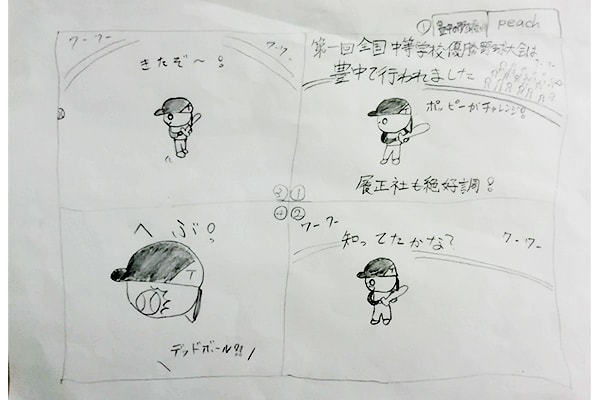 ①
peach
第一回全国中等学校優勝野球大会は
豊中で行われました
ポッピーがチャレンジ!
履正社も絶好調!
①
②
ワーワー
知ってたかな?
ワーワー
③
ワーワー
ワーワー
きたぞ〜!
④
へぶ!!
T
デッドボール!!!